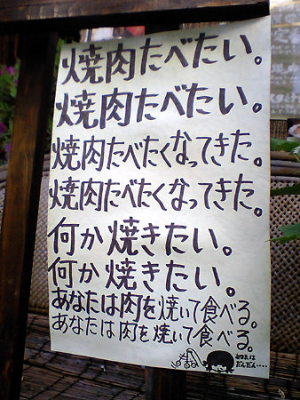 焼肉たべたい。
焼肉たべたい。
焼肉たべたくなってきた。
焼肉たべたくなってきた。
何か焼きたい。
何か焼きたい。
あなたは肉を焼いて食べる。
あなたは肉を焼いて食べる。
あなたは
だんだん‥‥